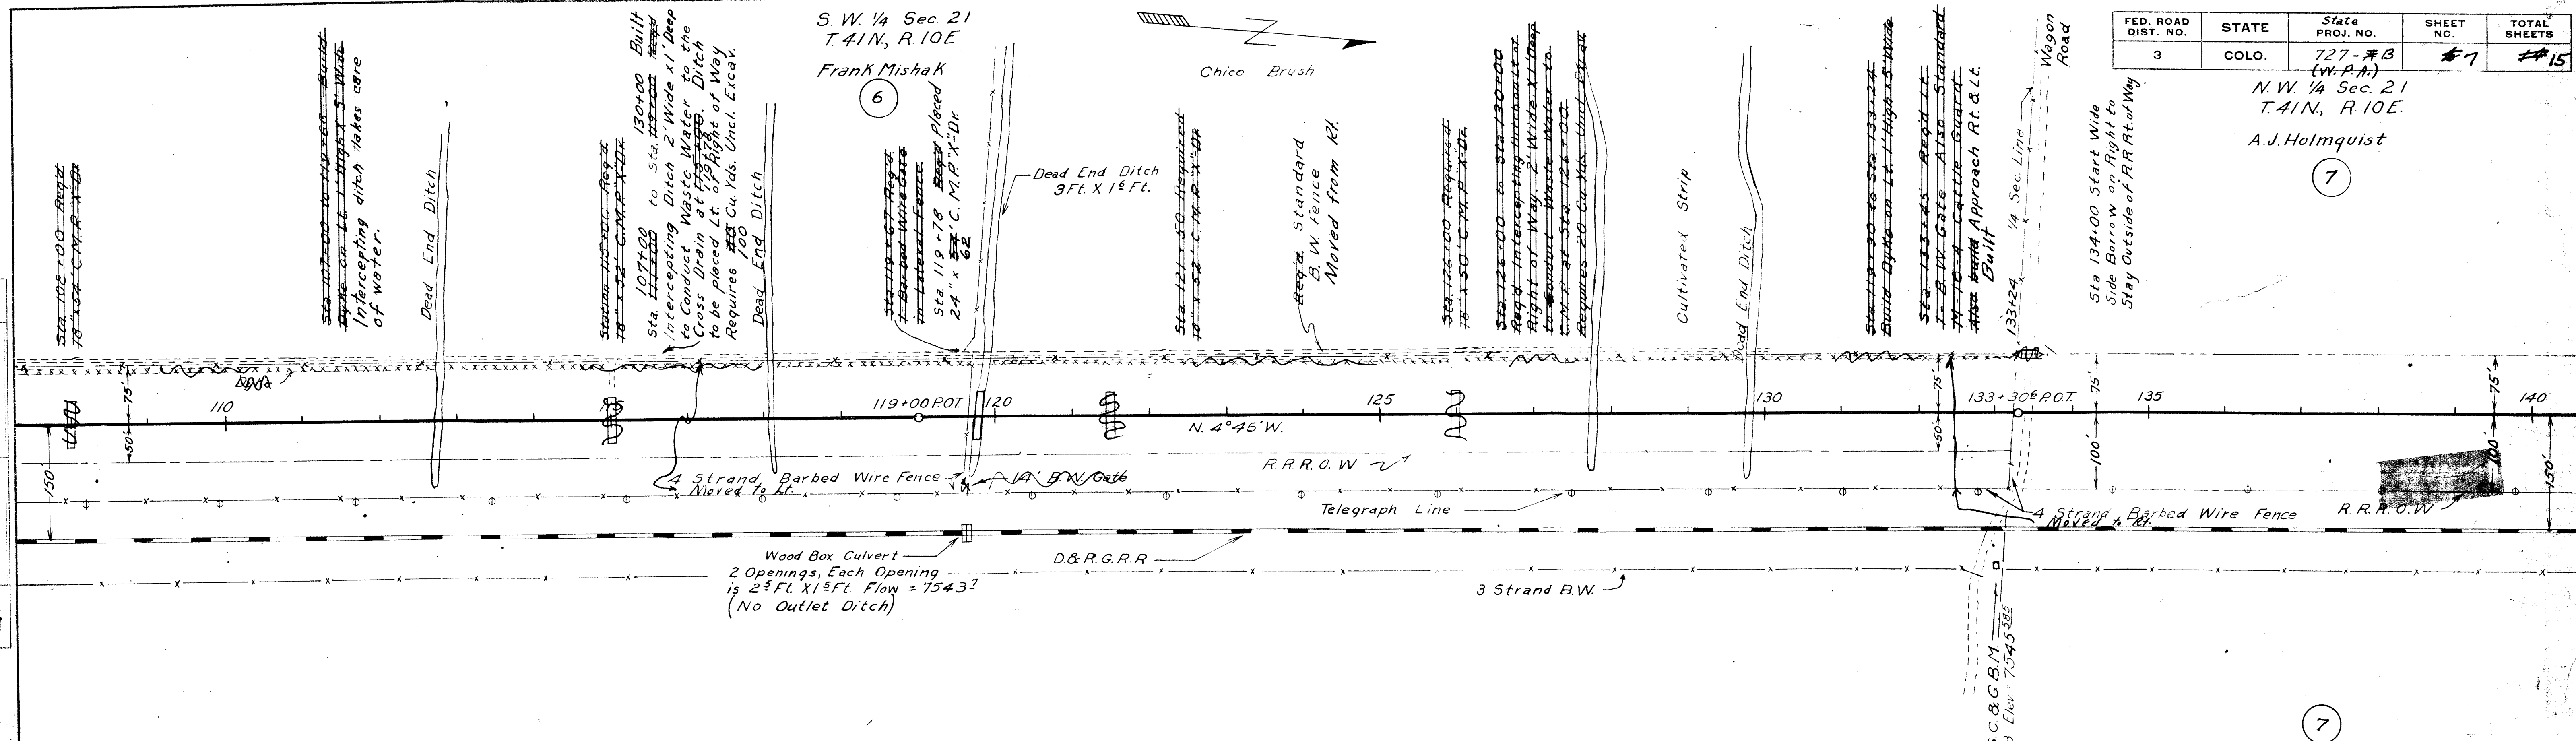 FED. ROAD DIST. NO. STATE State PROJ. NO. SHEET NO. TOTAL SHEETS
3 COLO. 727-B 7 15
(W.P.A.)
N. W. ¼ Sec. 21
T. 41 N., R. 10 E.
A. J. Holmquist
7
S. W. ¼ Sec. 21
T. 41 N., R. 10 E
Frank Mishak
6
Z
Chico Brush
Wagon
Road
Sta. 108+00 Req'd
18" x 54' C.M.P. "X"-Dr.
Sta. 107+00 to 119+68 Build
Dyke on Lt. 1' High x 5' Wide
Intercepting ditch takes care
of water.
Dead End Ditch
Station 115+00 Req'd
18" x 52' C.M.P. "X"-Dr.
107+00 130+00 Built
Sta. 111+00 to Sta. 119+00 Req'd
Intercepting Ditch 2' Wide x 1' Deep
to Conduct Waste Water to the
Cross Drain at 115+00. Ditch
119+78
to be placed Lt. of Right of Way
Requires 100 Cu. Yds. Uncl. Excav.
Dead End Ditch
Sta. 119+67 Req'd
1 Barbed Wire Gate
in Lateral Fence
Sta. 119+78 Req'd Placed
24" x 54' C.M.P. "X"-Dr.
62
Dead End Ditch
3 Ft. X 1⁶ Ft.
Sta. 121+50 Required
18" x 52' C.M.P. "X"-Dr.
Req'd Standard
B.W. Fence
Moved from Rt.
Sta. 126+00 Required
18" x 50' C.M.P. "X"-Dr.
Sta. 126+00 to Sta. 130+00
Req'd Intercepting Ditch on Lt. of
Right of Way, 2' Wide X 1' Deep
to Conduct Waste Water to
C.M.P. at Sta. 126+00.
Requires 20 Cu. Yds. Uncl. Excav.
Cultivated Strip
Dead End Ditch
Sta. 119+90 to Sta. 133+24
Build Dyke on Lt. 1' High x 5' Wide
Sta. 133+45 Req'd Lt.
1 - B.W. Gate Also Standard
M-16-A Cattle Guard
Also Build Approach Rt. & Lt.
Built
133+24 ¼ Sec. Line
Sta 134+00 Start Wide
Side Borrow on Right to
Stay Outside of R.R. Rt. of Way
75'
75'
75'
75'
110
115
119+00 P.O.T.
120
125
130
133+30⁶ P.O.T.
135
140
N. 4°45' W.
50'
50'
100'
100'
150'
150'
R.R.R.O.W
4 Strand Barbed Wire Fence
Moved To Lt.
14' B.W. Gate
Telegraph Line
4 Strand Barbed Wire Fence
Moved to Rt.
R.R.R.O.W
Wood Box Culvert
2 Openings, Each Opening
is 2⁵ Ft. X 1⁵ Ft. Flow = 7543⁷
(No Outlet Ditch)
D.& R.G.R.R.
3 Strand B.W.
C. & G B.M.
Elev 7545⁵⁸⁵
7